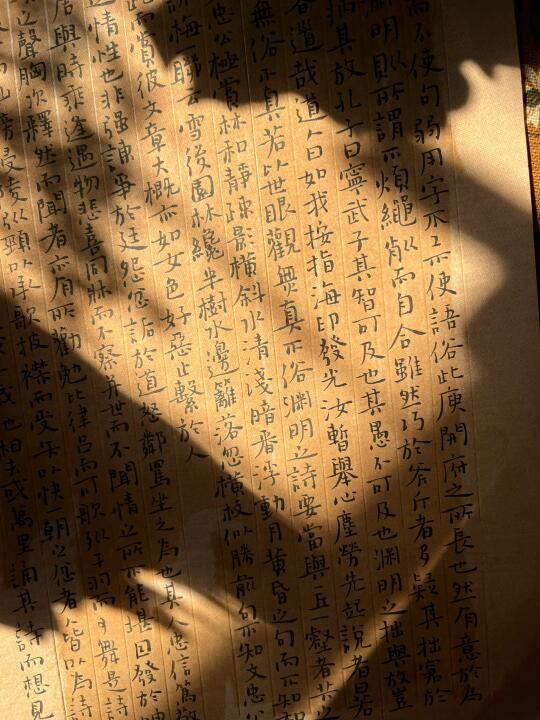 不使句弱用字不工不使語俗此庾開府之所長也然有意於為
淵明則所謂不煩繩削而自合雖然巧於斧斤者多疑其拙窘於
病其放孔子曰寧武子其智可及也其愚不可及也淵明之拙與放豈
者道哉道人曰如我按指海印發光汝暫舉心塵勞先起說者曰若
無俗不真若以世眼觀無真不俗淵明之詩要當與一丘一壑者共之
忠公極賞林和靜疎影橫斜水清淺暗香浮動月黃昏之句而不知和
詠梅一聯云雪後園林纔半樹水邊籬落忽橫枝似勝前句不知文忠公
此而賞彼文章大概亦如女色好惡止繫於人
情性也非強諫爭於廷怨忿詬於道怒鄰罵坐之為也其人忠信篤敬
居與時乖逢遇物悲喜同牀而不察并世而不聞情之所不能堪因發於呻
之聲胸次釋然而聞者亦有所勸勉比律呂而可歌列干羽而可舞是詩
訕謗侵陵引頸以承歌披襟而受矢以快一朝之忿者人皆以為詩
世也相去或萬里誦其詩而想見